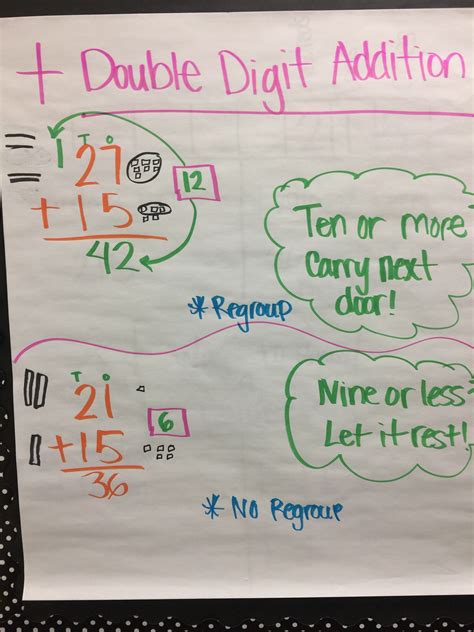 + Double Digit Addition
T O
1 27
12
+ 15
42
Ten or more
Carry next
door!
*Regroup
T O
21
6
+15
36
Nine or less
Let it rest!
* No Regroup